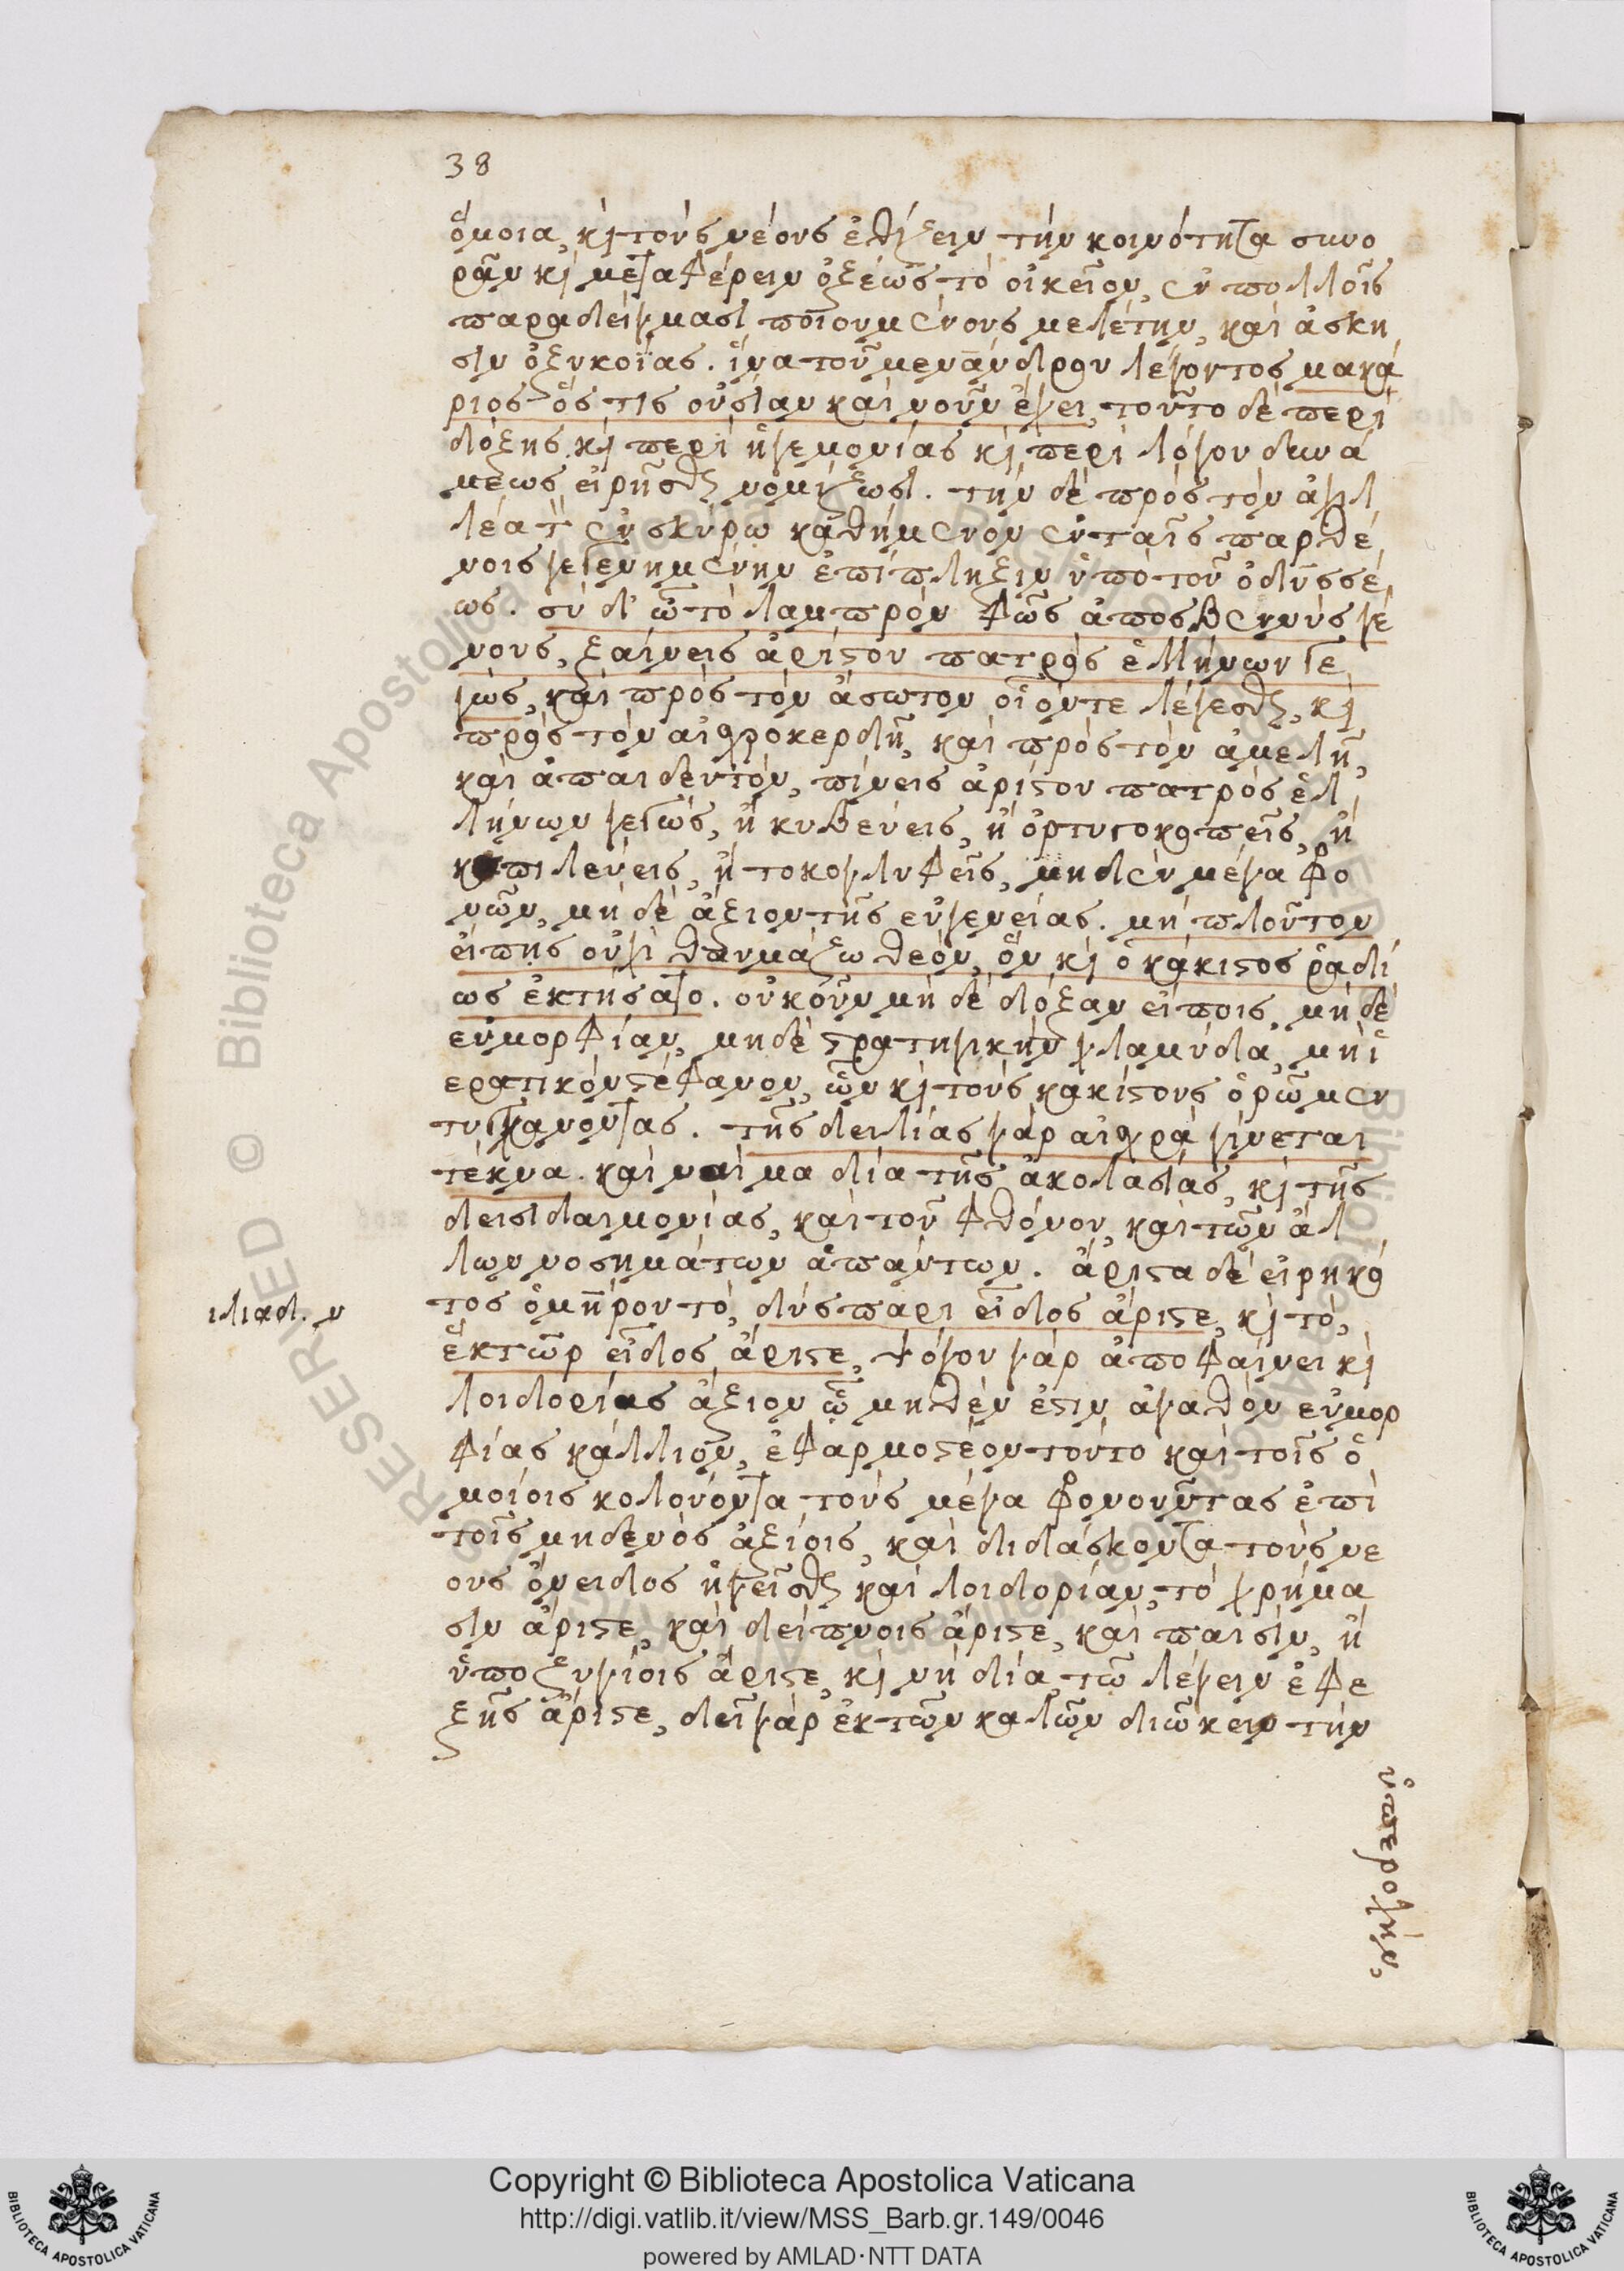 38
ὅμοια, κ̀ τοὺς νέους ἐθίζειν τὴν κοινότητα συνο
ρᾶν κ̀ μεταφέρειν ὀξέως τὸ οἰκεῖον, ἐν πολλοῖς
παραδείγμασι ποιουμένους μελέτην, καὶ ἄσκη
σιν ὀξυκοΐας. ἵνα τοῦ μενάνδρου λέγοντος μακά
ριος ὅς τις οὐσίαν καὶ νοῦν ἔχει, τοῦτο δὲ περὶ
δόξης κ̀ περὶ ἡγεμονίας κ̀ περὶ λόγου δυνά
μεως εἰρῆσθαι νομίζωσι. τὴν δὲ πρὸς τὸν ἀχιλ
λέα τ̀ ἐν σκύρω καθήμενον ἐν ταῖς παρθέ
νοις γεγενημένην ἐπίπληξιν ὑπὸ τοῦ ὀδυσσέ
ως. σὺ δ' ὦ τὸ λαμπρὸν φῶς ἀποσβεννὺς γέ
νους, ξαίνεις ἀρίστου πατρὸς ἑλλήνων γε
γὼς, καὶ πρὸς τὸν ἄσωτον οἷόντε λέγεσθαι, κ̀
πρὸς τὸν αἰχροκερδῆ, καὶ πρὸς τὸν ἀμελῆ,
καὶ ἀπαιδευτὸν, πίνεις ἀρίστου πατρὸς ἑλ
λήνων γεγὼς, ἢ κυβεύεις, ἢ ὀρτυγοκοπεῖς, ἢ
καπιλεύεις, ἢ τοκογλυφεῖς, μηδὲν μέγα φρο
νῶν, μὴ δὲ ἄξιον τῆς εὐγενείας. μὴ πλοῦτον
εἴπης οὐχὶ θαυμάζω θεὸν, ὃν κ̀ ὁ κάκιστος ῥαδί
ως ἐκτήσατο. οὐκοῦν μὴ δὲ δόξαν εἴποις, μὴ δὲ
εὐμορφίαν, μηδὲ στρατηγικὴν χλαμύδα, μὴ ἱ
ερατικὸν στέφανον, ὧν κ̀ τοὺς κακίστους ὁρῶμεν
τυγχάνοντας. τῆς δειλίας γὰρ αἰχρὰ γίνεται
τέκνα. καὶ ναὶ μα δία τῆς ἀκολασίας, κ̀ τῆς
δεισιδαιμονίας, καὶ τοῦ φθόνου, καὶ τῶν ἄλ
λων νοσημάτων ἁπάντων. ἄριστα δὲ εἰρηκό
τος ὁμήρου τὸ, δύσπαρι εἶδος ἄριστε, κ̀ τὸ,
ἕκτωρ εἶδος ἄριστε, ψόγου γὰρ ἀποφαίνει κ̀
λοιδορίας ἄξιον ὧ μηθὲν ἐστιν ἀγαθὸν εὐμορ
φίας κάλλιον, ἐφαρμοστέον τοῦτο καὶ τοῖς ὁ
μοίοις κολούοντα τοὺς μέγα φρονοῦντας ἐπὶ
τοῖς μηδενὸς ἀξίοις, καὶ διδάσκοντα τοὺς νέ
ους ὄνειδος ἡγεῖσθαι καὶ λοιδορίαν, τὸ χρήμα
σιν ἄριστε, καὶ δείπνοις ἄριστε, καὶ παισὶν, ἢ
ὑποζυγίοις ἄριστε, κ̀ νὴ δία, τῶ λέγειν ἐφε
ξῆς ἄριστε, δεῖ γὰρ ἐκ τῶν καλῶν διώκειν τὴν
ὑπεροχήν,
ιλιαδ. ν
Copyright © Biblioteca Apostolica Vaticana
http://digi.vatlib.it/view/MSS_Barb.gr.149/0046
powered by AMLAD·NTT DATA
BIBLIOTECA APOSTOLICA VATICANA
BIBLIOTECA APOSTOLICA VATICANA